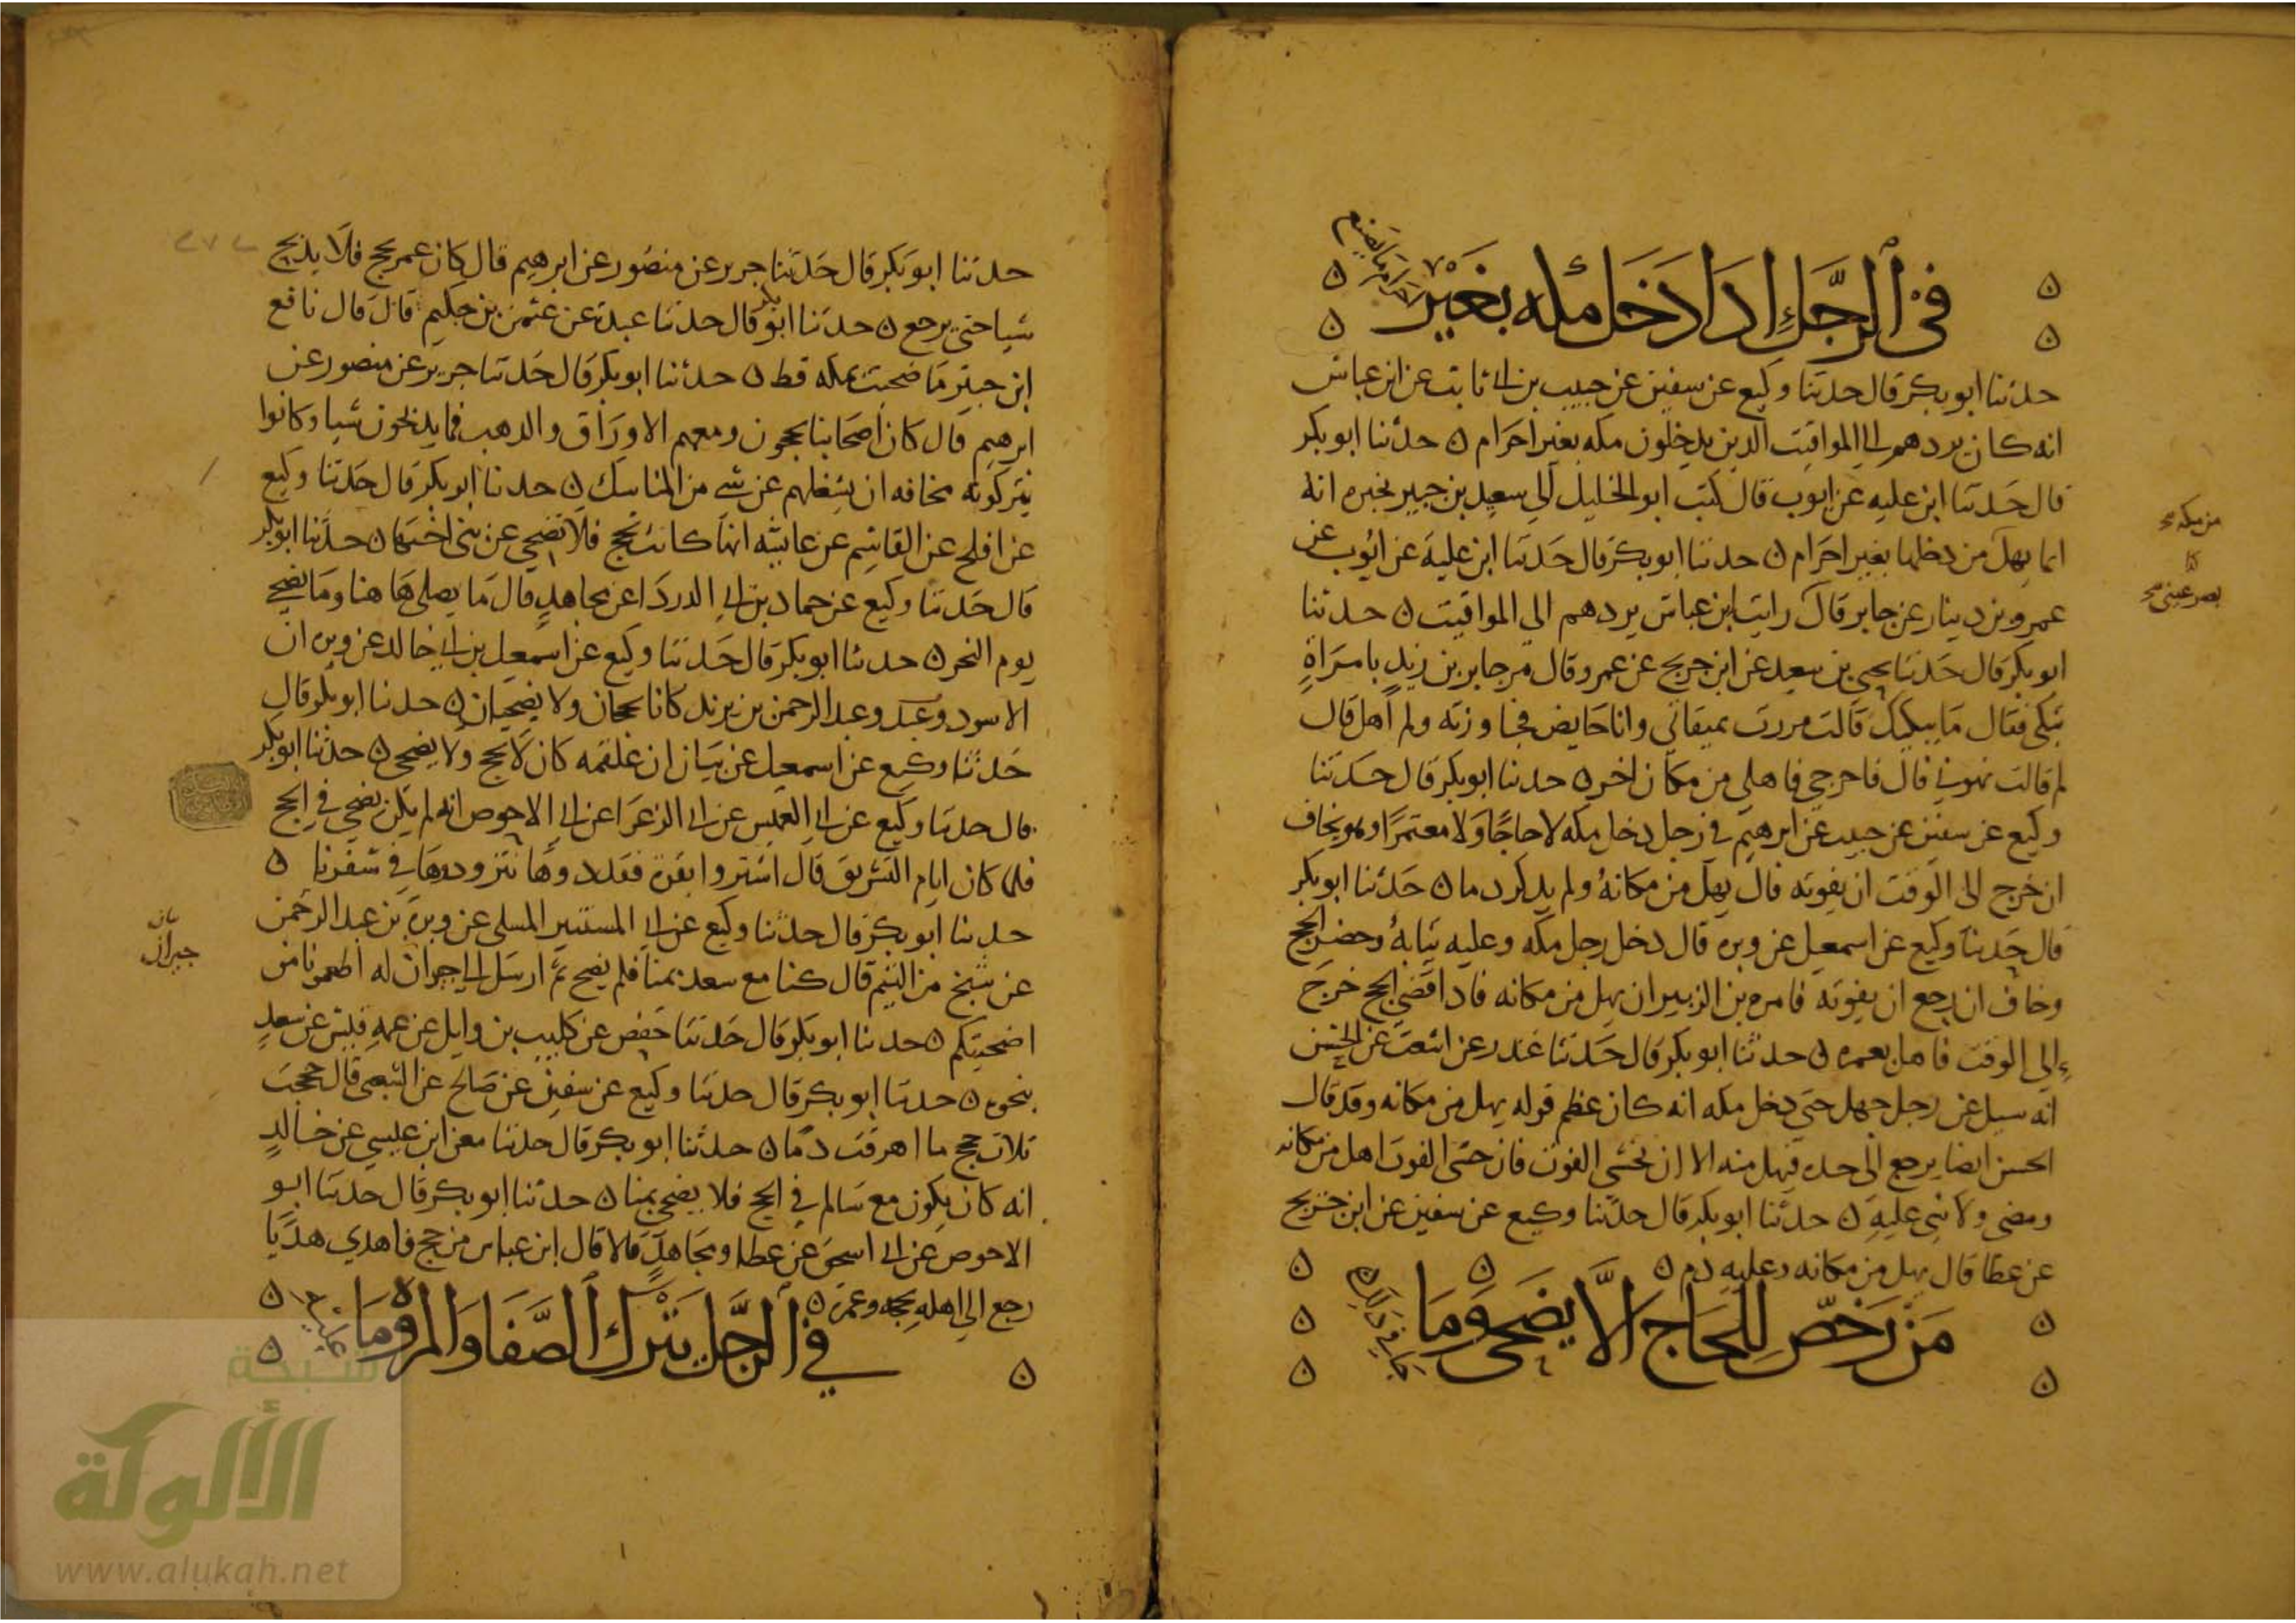 في الرجل اذا دخل مكه بغير
احرام ما يصنع
حدثنا ابو بكر قال حدثنا وكيع عن سفين عن حبيب بن ابي ثابت عن ابن عباس
انه كان يردهم الي المواقيت الذين يدخلون مكه بغير احرام ن حدثنا ابو بكر
قال حدثنا ابن عليه عن ايوب قال كتب ابو الخليل الي سعيد بن جبير يخبره انه
انما يهل من دخلها بغير احرام ن حدثنا ابو بكر قال حدثنا ابن علية عن ايوب عن
عمرو بن دينار عن جابر قال رايت ابن عباس يردهم الي المواقيت ن حدثنا
ابو بكر قال حدثنا يحيي بن سعيد عن ابن جريج عن عمرو قال مر جابر بن زيد بامراة
تبكي فقال ما يبكيك قالت مررت بميقاتي وانا حايض فجاوزته ولم اهل قال
لم قالت نهوني قال فاخرجي فاهلي من مكان اخر ن حدثنا ابو بكر قال حدثنا
وكيع عن سفين عن حبيب عن ابرهيم في رجل دخل مكه لا حاجا ولا معتمرا وهو يخاف
ان خرج الي الوقت ان يفوته قال يهل من مكانه ولم يذكر دما ن حدثنا ابو بكر
قال حدثنا وكيع عن اسمعيل عن وبره قال دخل رجل مكه وعليه ثيابه وحضر الحج
وخاف ان رجع ان يفوته فامره بن الزبير ان يهل من مكانه فاذا قضي الحج خرج
الي الوقت فاهل بعمره ن حدثنا ابو بكر قال حدثنا غندر عن اشعث عن الحسن
انه سيل عن رجل جهل حتي دخل مكه انه كان عظم قوله يهل من مكانه وقد قال
الحسن ايضا يرجع الي حده فيهل منه الا ان يخشي الفوت فان خشي الفوت اهل من مكانه
ومضي ولا شي عليه ن حدثنا ابو بكر قال حدثنا وكيع عن سفين عن ابن جريج
عن عطا قال يهل من مكانه وعليه دم ن
من رخص للحاج الا يضحي وما
جا في ذلك
من مكه
بصر عيني
حدثنا ابو بكر قال حدثنا جرير عن منصور عن ابرهيم قال كان عمر يحج فلا يذبح
شيا حتي يرجع ن حدثنا ابو بكر قال حدثنا عبدة عن عثمن بن حكيم قال قال نافع
ابن جبير ما ضحيت بمكه قط ن حدثنا ابو بكر قال حدثنا جرير عن منصور عن
ابرهيم قال كان اصحابنا يحجون ومعهم الاوراق والذهب فما يذبحون شيا وكانوا
يتركونه مخافه ان يشغلهم عن شي من المناسك ن حدثنا ابو بكر قال حدثنا وكيع
عن افلح عن القاسم عن عايشه انها كانت تحج فلا تضحي عن بني اختها ن حدثنا ابو بكر
قال حدثنا وكيع عن حماد بن ابي الدردا عن مجاهد قال ما يصلي ها هنا وما يضحي
يوم النحر ن حدثنا ابو بكر قال حدثنا وكيع عن اسمعيل بن ابي خالد عن وبره ان
الاسود وعبد الرحمن بن يزيد كانا يحجان ولا يضحيان ن حدثنا ابو بكر قال
حدثنا وكيع عن اسمعيل عن بيان ان علقمه كان يحج ولا يضحي ن حدثنا ابو بكر
قال حدثنا وكيع عن ابي العميس عن ابي الزعرا عن ابي الاحوص انه لم يكن يضحي في الحج
فلما كان ايام التشريق قال اشتروا بقرة فقددوها نتزودوها في سفرنا ن
حدثنا ابو بكر قال حدثنا وكيع عن ابي المستنير المسلي عن وبرة بن عبد الرحمن
عن شيخ من التيم قال كنا مع سعد بمنا فلم يضح ثم ارسل الي جيران له اطعمونا من
اضحيتكم ن حدثنا ابو بكر قال حدثنا حفص عن كليب بن وايل عن عمه قيس عن سعد
بنحوه ن حدثنا ابو بكر قال حدثنا وكيع عن سفين عن صالح عن الشعبي قال حججت
ثلاث حجج ما اهرقت دما ن حدثنا ابو بكر قال حدثنا معن ابن عيسي عن خالد
انه كان يكون مع سالم في الحج فلا يضحي بمنا ن حدثنا ابو بكر قال حدثنا ابو
الاحوص عن ابي اسحق عن عطا ومجاهد قالا قال ابن عباس من حج فاهدي هديا
رجع الي اهله بحجه وعمره ن
في الرجل يترك الصفا والمروة وما
عليه
جيران
شبكة
الألوكة
www.alukah.net